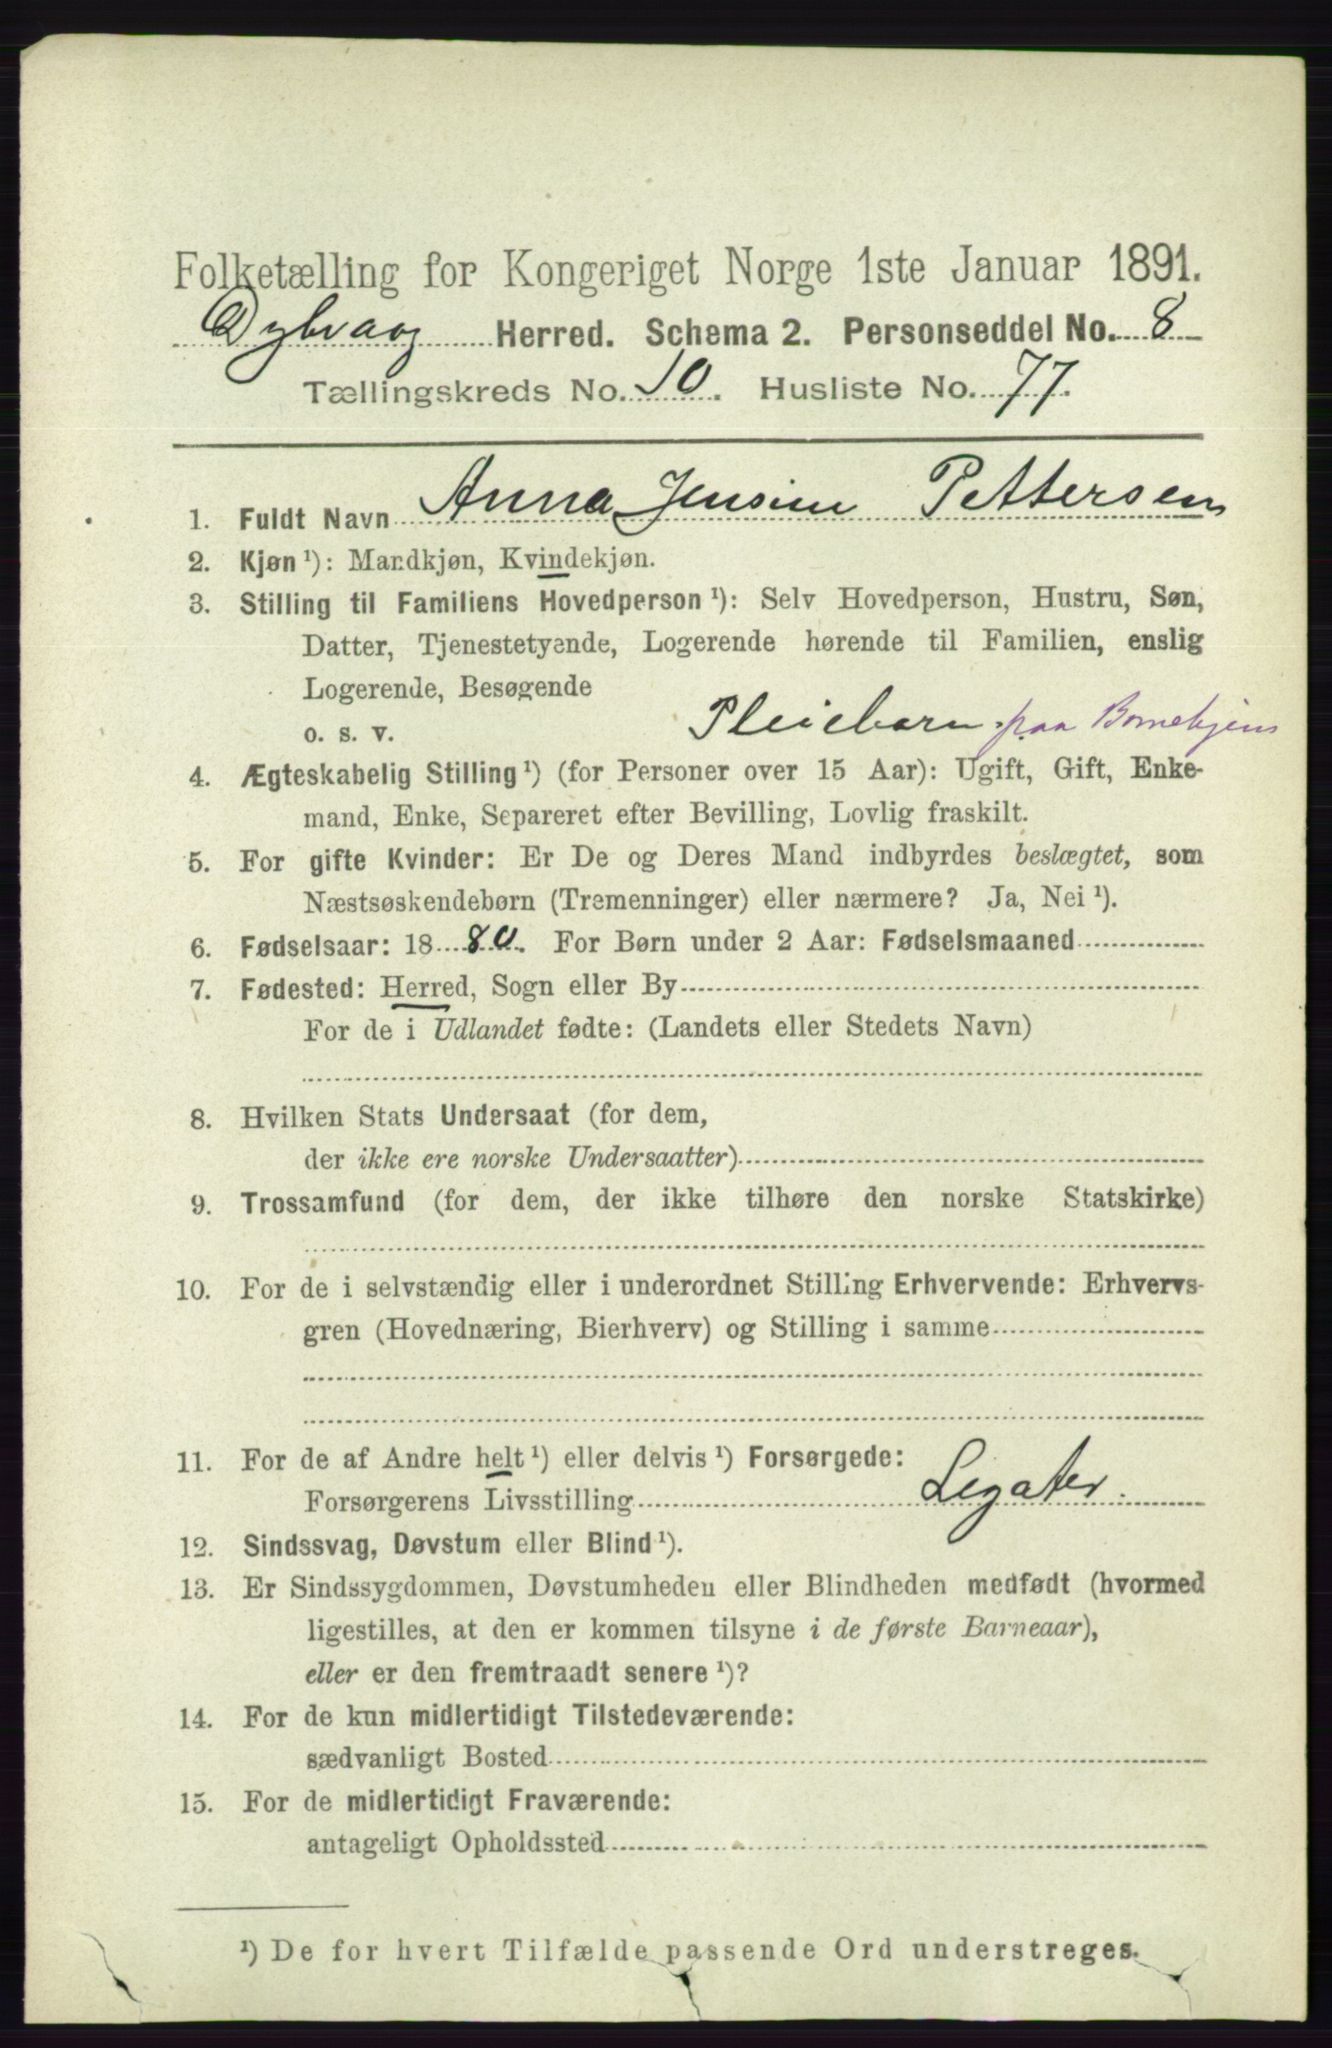 Folketælling for Kongeriget Norge 1ste Januar 1891.
Dybvaag Herred. Schema 2. Personseddel No. 8
Tællingskreds No. 10. Husliste No. 77.
1. Fuldt Navn Anna Jensine Pettersen
2. Kjøn ¹): Mandkjøn, Kvindekjøn.
3. Stilling til Familiens Hovedperson ¹): Selv Hovedperson, Hustru, Søn,
Datter, Tjenestetyende, Logerende hørende til Familien, enslig
Logerende, Besøgende
o. s. v. Pleiebarn paa Børnehjem
4. Ægteskabelig Stilling ¹) (for Personer over 15 Aar): Ugift, Gift, Enke-
mand, Enke, Separeret efter Bevilling, Lovlig fraskilt.
5. For gifte Kvinder: Er De og Deres Mand indbyrdes beslægtet, som
Næstsøskendebørn (Tremenninger) eller nærmere? Ja, Nei ¹).
6. Fødselsaar: 1880. For Børn under 2 Aar: Fødselsmaaned
7. Fødested: Herred, Sogn eller By
For de i Udlandet fødte: (Landets eller Stedets Navn)
8. Hvilken Stats Undersaat (for dem,
der ikke ere norske Undersaatter)
9. Trossamfund (for dem, der ikke tilhøre den norske Statskirke)
10. For de i selvstændig eller i underordnet Stilling Erhvervende: Erhvervs-
gren (Hovednæring, Bierhverv) og Stilling i samme
11. For de af Andre helt ¹) eller delvis ¹) Forsørgede:
Forsørgerens Livsstilling Legater.
12. Sindssvag, Døvstum eller Blind ¹).
13. Er Sindssygdommen, Døvstumheden eller Blindheden medfødt (hvormed
ligestilles, at den er kommen tilsyne i de første Barneaar),
eller er den fremtraadt senere ¹)?
14. For de kun midlertidigt Tilstedeværende:
sædvanligt Bosted
15. For de midlertidigt Fraværende:
antageligt Opholdssted
¹) De for hvert Tilfælde passende Ord understreges.